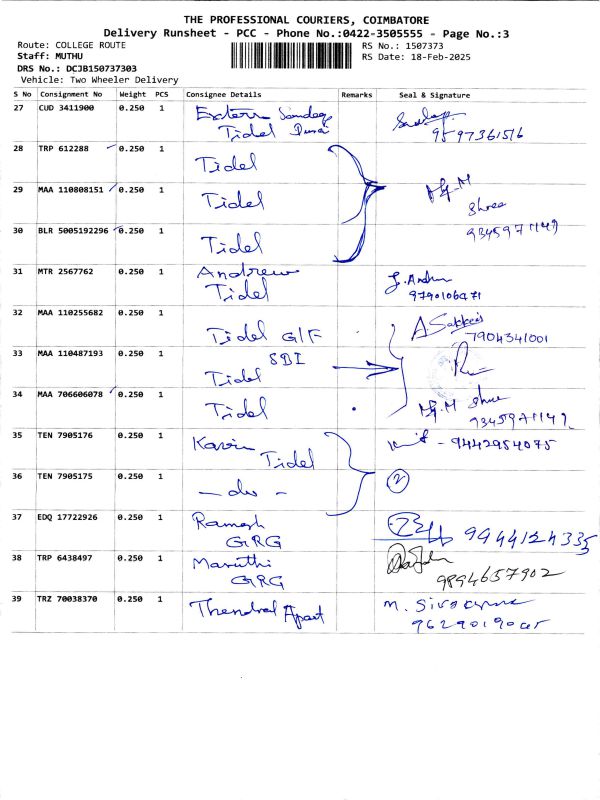 THE PROFESSIONAL COURIERS, COIMBATORE
Delivery Runsheet - PCC - Phone No.:0422-3505555 - Page No.:3
Route: COLLEGE ROUTE
RS No.: 1507373
Staff: MUTHU
RS Date: 18-Feb-2025
DRS No.: DCJB150737303
Vehicle: Two Wheeler Delivery
S No Consignment No Weight PCS Consignee Details Remarks Seal & Signature
27 CUD 3411900 0.250 1
Tidel
9597361516
28 TRP 612288 0.250 1 Tidel
29 MAA 110808151 0.250 1 Tidel
Shree
30 BLR 5005192296 0.250 1 Tidel
31 MTR 2567762 0.250 1 Andrew
Tidel
32 MAA 110255682 0.250 1 Tidel G/F
7904341001
SBI
33 MAA 110487193 0.250 1 Tidel
34 MAA 706606078 0.250 1 Tidel
Shree
35 TEN 7905176 0.250 1 Kavin
Tidel
- 9442954075
36 TEN 7905175 0.250 1 - do - 2
37 EDQ 17722926 0.250 1 Ramesh
GRG
9944124335
38 TRP 6438497 0.250 1 Maruthi
GRG
9894657902
39 TRZ 70038370 0.250 1 Thendral Apart